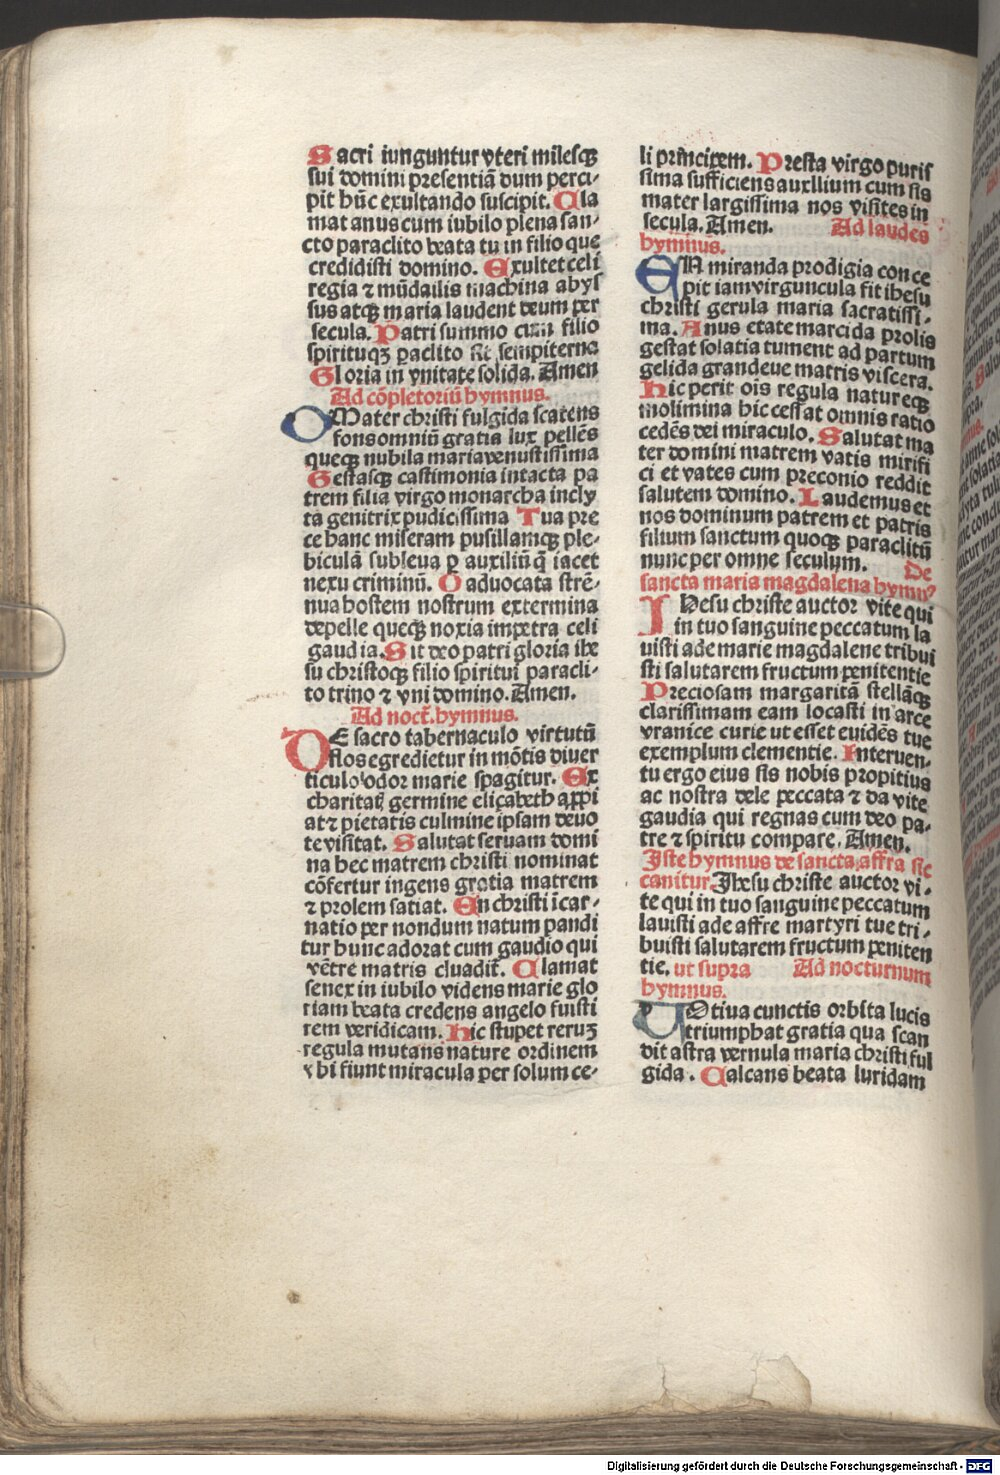 Sacri iunguntur vteri milesqꝫ
sui domini presentiā dum perci-
pit hūc exultando suscipit. Cla
mat anus cum iubilo plena san-
cto paraclito beata tu in filio que
credidisti domino. Exultet celi
regia ⁊ mūdailis machina abys
sus atqꝫ maria laudent deum per
secula. Patri summo cum filio
spirituqꝫ paclito sit sempiterna
Gloria in vnitate solida. Amen
Ad cōpletoriū hymnus.
O Mater christi fulgida scatens
fons omniū gratia lux pellēs
queqꝫ nubila maria venustissima
Gestasqꝫ castimonia intacta pa
trem filia virgo monarcha incly
ta genitrix pudicissima Tua pre
ce hanc miseram pusillamqꝫ ple-
biculā subleua ꝑ auxiliū q̄ iacet
nexu criminū. O aduocata strē-
nua hostem nostrum extermina
depelle queqꝫ noxia impetra celi
gaudia. Sit deo patri gloria ihe
su christoqꝫ filio spiritui paracli-
to trino ⁊ vni domino. Amen.
Ad noct̄. hymnus.
DE sacro tabernaculo virtutū
flos egredietur in mōtis diuer
ticulo odor marie spagitur. Ex
charitatꝭ germine elicabeth appi
at⁊ pietatis culmine ipsam deuo
te visitat. Salutat seruam domi
na hec matrem christi nominat
cōfertur ingens gratia matrem
⁊ prolem satiat. En christi īcar-
natio per nondum natum pandi
tur hunc adorat cum gaudio qui
vētre matris cluadit̄. Clamat
senex in iubilo videns marie glo
riam beata credens angelo fuisti
rem veridicam. Hic stupet rerūꝫ
regula mutans nature ordinem
vbi fiunt miracula per solum ce-
li principem. Presta virgo puris
sima sufficiens auxllium cum sis
mater largissima nos visites in
secula. Amen. Ad laudes
hymnus.
EN miranda prodigia conce
pit iam virguncula fit ihesu
christi gerula maria sacratissi-
ma. Anus etate marcida prolis
gestat solatia tument ad partum
gelida grandeue matris viscera.
Hic perit oīs regula natureqꝫ
molimina hic cessat omnis ratio
cedēs dei miraculo. Salutat ma
ter domini matrem vatis mirifi
ci et vates cum preconio reddit
salutem domino. Laudemus et
nos dominum patrem et patris
filium sanctum quoqꝫ paraclitū
nunc per omne seculum. De
sancta maria magdalena hymnꝰ
IHesu christe auctor vite qui
in tuo sanguine peccatum la
uisti ade marie magdalene tribui
sti salutarem fructum penitentie
Preciosam margaritā stellāqꝫ
clarissimam eam locasti in arce
vranice curie ut esset euidēs tue
exemplum clementie. Interuen-
tu ergo eius sis nobis propitius
ac nostra dele peccata ⁊ da vite
gaudia qui regnas cum deo pa-
tre ⁊ spiritu compare. Amen.
Iste hymnus de sancta affra sic
canitur. Ihesu christe auctor vi-
te qui in tuo sanguine peccatum
lauisti ade affre martyri tue tri-
buisti salutarem fructum peniten
tie. ut supra Ad nocturnum
hymnus.
VOtiua cunctis orbita lucis
triumphat gratia qua scan
dit astra vernula maria christi ful
gida. Calcans beata luridam
Digitalisierung gefördert durch die Deutsche Forschungsgemeinschaft - DFG